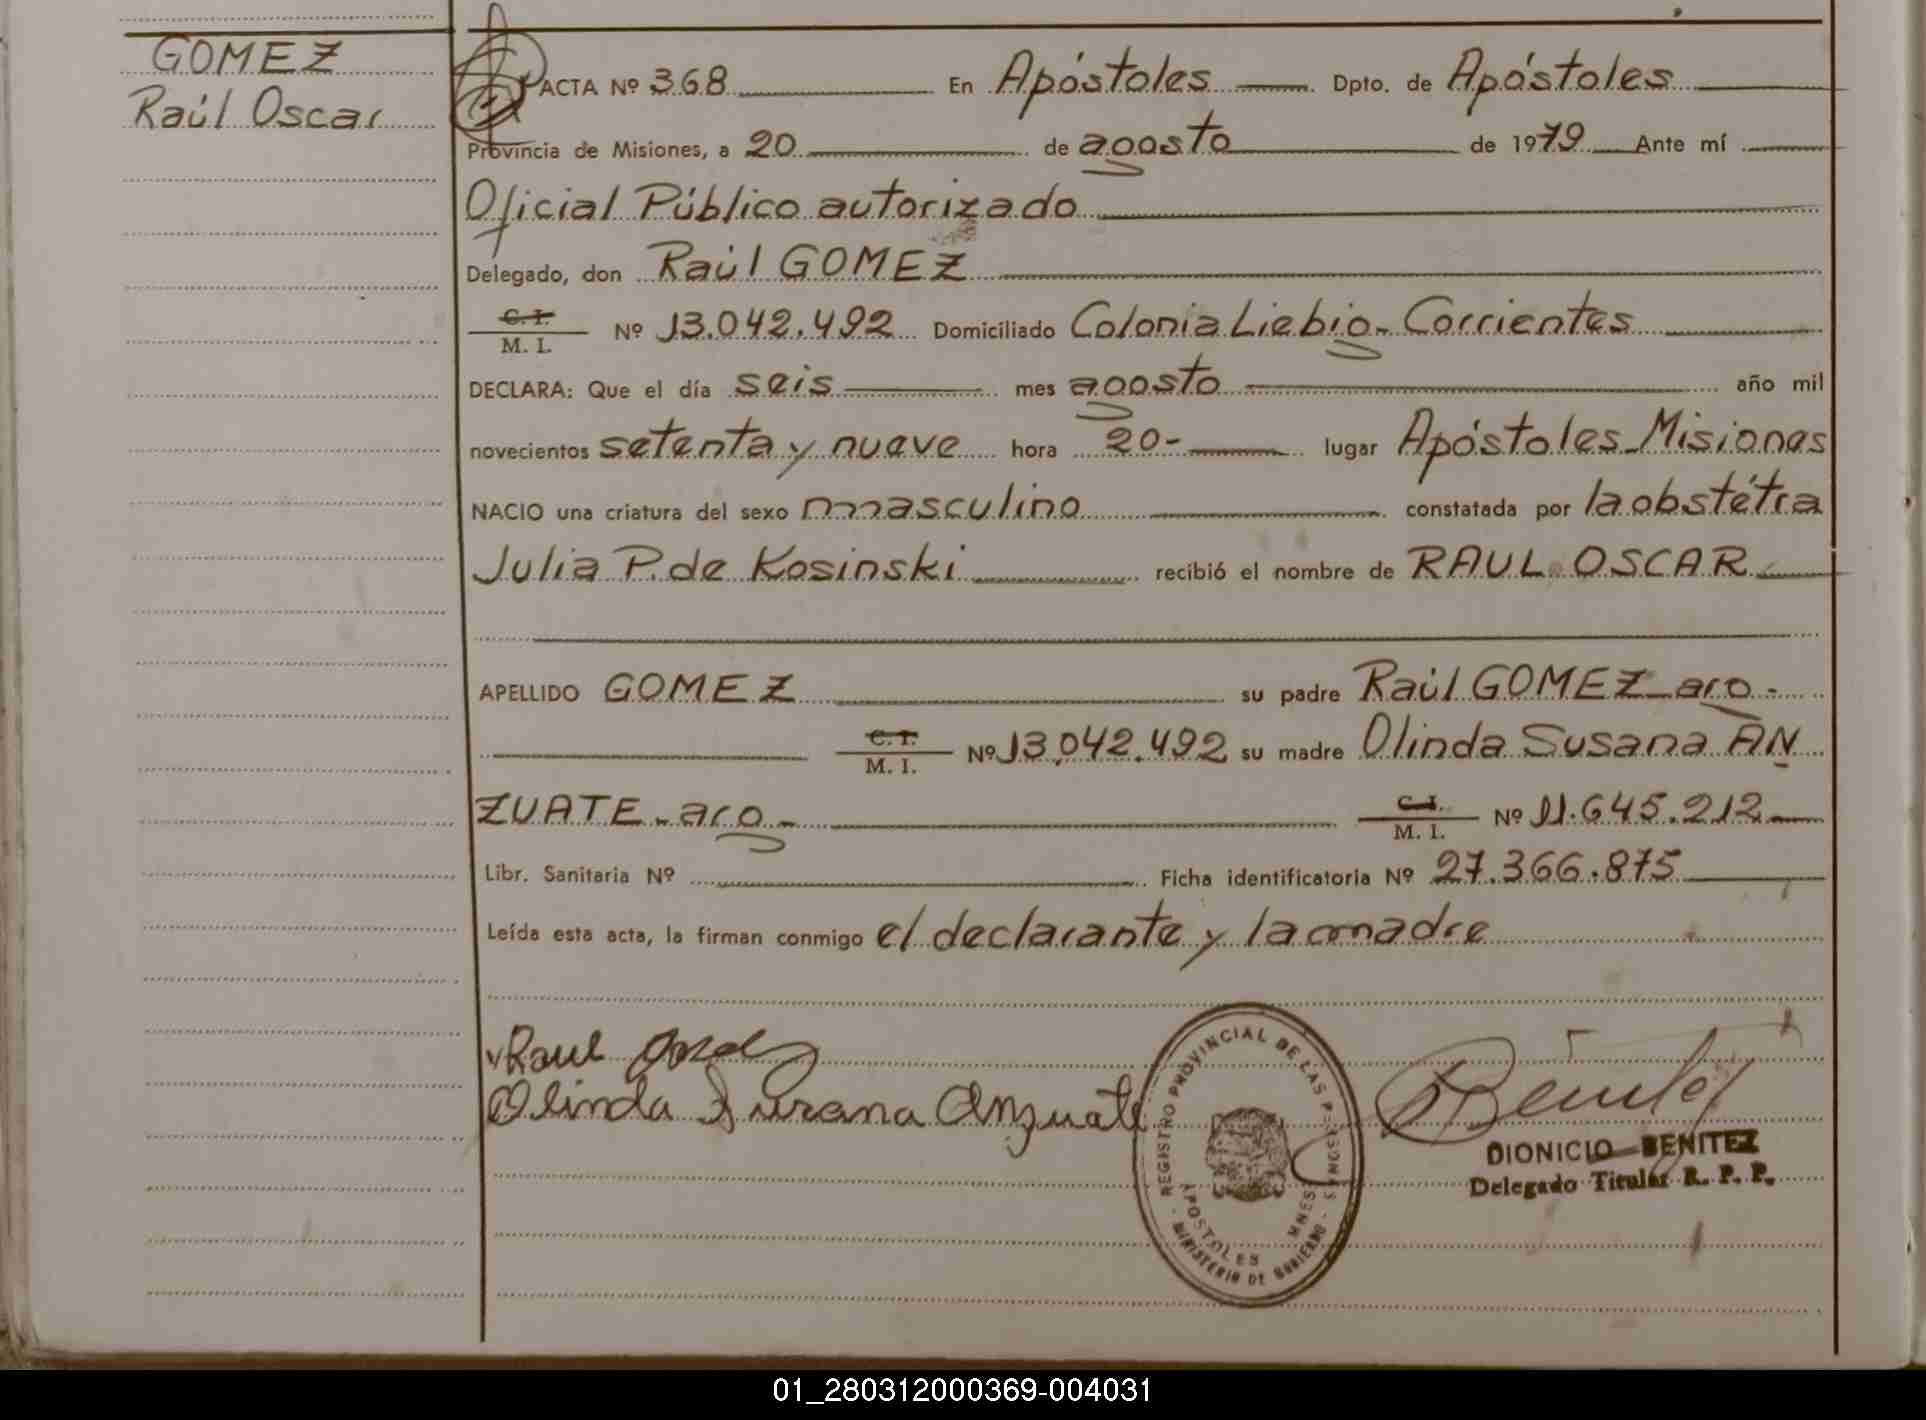 GOMEZ
Raúl Oscar
ACTA Nº 368 En Apóstoles Dpto. de Apóstoles
Provincia de Misiones, a 20 de agosto de 1979 Ante mí
Oficial Público autorizado
Delegado, don Raúl GOMEZ
C. I.
M. I. Nº 13.042.492 Domiciliado Colonia Liebig - Corrientes
DECLARA: Que el día seis mes agosto año mil
novecientos setenta y nueve hora 20- lugar Apóstoles - Misiones
NACIO una criatura del sexo masculino constatada por la obstétra
Julia P. de Kosinski recibió el nombre de RAUL OSCAR
APELLIDO GOMEZ su padre Raúl GOMEZ - arg -
C. I.
M. I. Nº 13.042.492 su madre Olinda Susana AN
ZUATE - arg - C. I.
M. I. Nº 11.645.212
Libr. Sanitaria Nº Ficha identificatoria Nº 27.366.875
Leída esta acta, la firman conmigo el declarante y la madre
Raul
Olinda Susana Anzuate
REGISTRO PROVINCIAL DE LAS PERSONAS
APOSTOLES MNES
MINISTERIO DE GOBIERNO
Benitez
DIONICIO BENITEZ
Delegado Titular R. P. P.
01_280312000369-004031